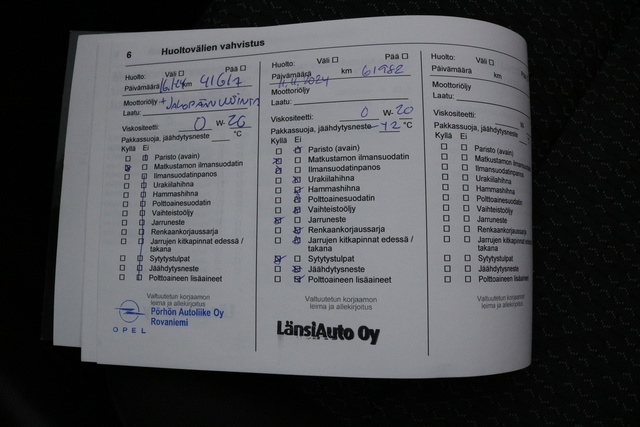 6 Huoltovälien vahvistus
Huolto: Väli Pää
Päivämäärä km 41617
Moottoriöljy + JAKOPÄÄN
Laatu:
Viskositeetti: 0 W- 20
Pakkassuoja, jäähdytysneste °C
Kyllä Ei
Paristo (avain)
Matkustamon ilmansuodatin
Ilmansuodatinpanos
Urakiilahihna
Hammashihna
Polttoainesuodatin
Vaihteistoöljy
Jarruneste
Renkaankorjaussarja
Jarrujen kitkapinnat edessä /
takana
Sytytystulpat
Jäähdytysneste
Polttoaineen lisäaineet
Valtuutetun korjaamon
leima ja allekirjoitus
OPEL
Pörhön Autoliike Oy
Rovaniemi
Huolto: Väli Pää
Päivämäärä km 61982
Moottoriöljy
Laatu:
Viskositeetti: 0 W- 20
Pakkassuoja, jäähdytysneste -42 °C
Kyllä Ei
Paristo (avain)
Matkustamon ilmansuodatin
Ilmansuodatinpanos
Urakiilahihna
Hammashihna
Polttoainesuodatin
Vaihteistoöljy
Jarruneste
Renkaankorjaussarja
Jarrujen kitkapinnat edessä /
takana
Sytytystulpat
Jäähdytysneste
Polttoaineen lisäaineet
Valtuutetun korjaamon
leima ja allekirjoitus
LänsiAuto Oy
Huolto: Väli Pää
Päivämäärä km
Moottoriöljy
Laatu:
Viskositeetti:
Pakkassuoja, jäähdytysneste
Kyllä Ei
Paristo (avain)
Matkustamon ilmansuodatin
Ilmansuodatinpanos
Urakiilahihna
Hammashihna
Polttoainesuodatin
Vaihteistoöljy
Jarruneste
Renkaankorjaussarja
Jarrujen kitkapinnat
takana
Sytytystulpat
Jäähdytysneste
Polttoaineen lisäaineet
Valtuutetun korjaamon
leima ja allekirjoitus